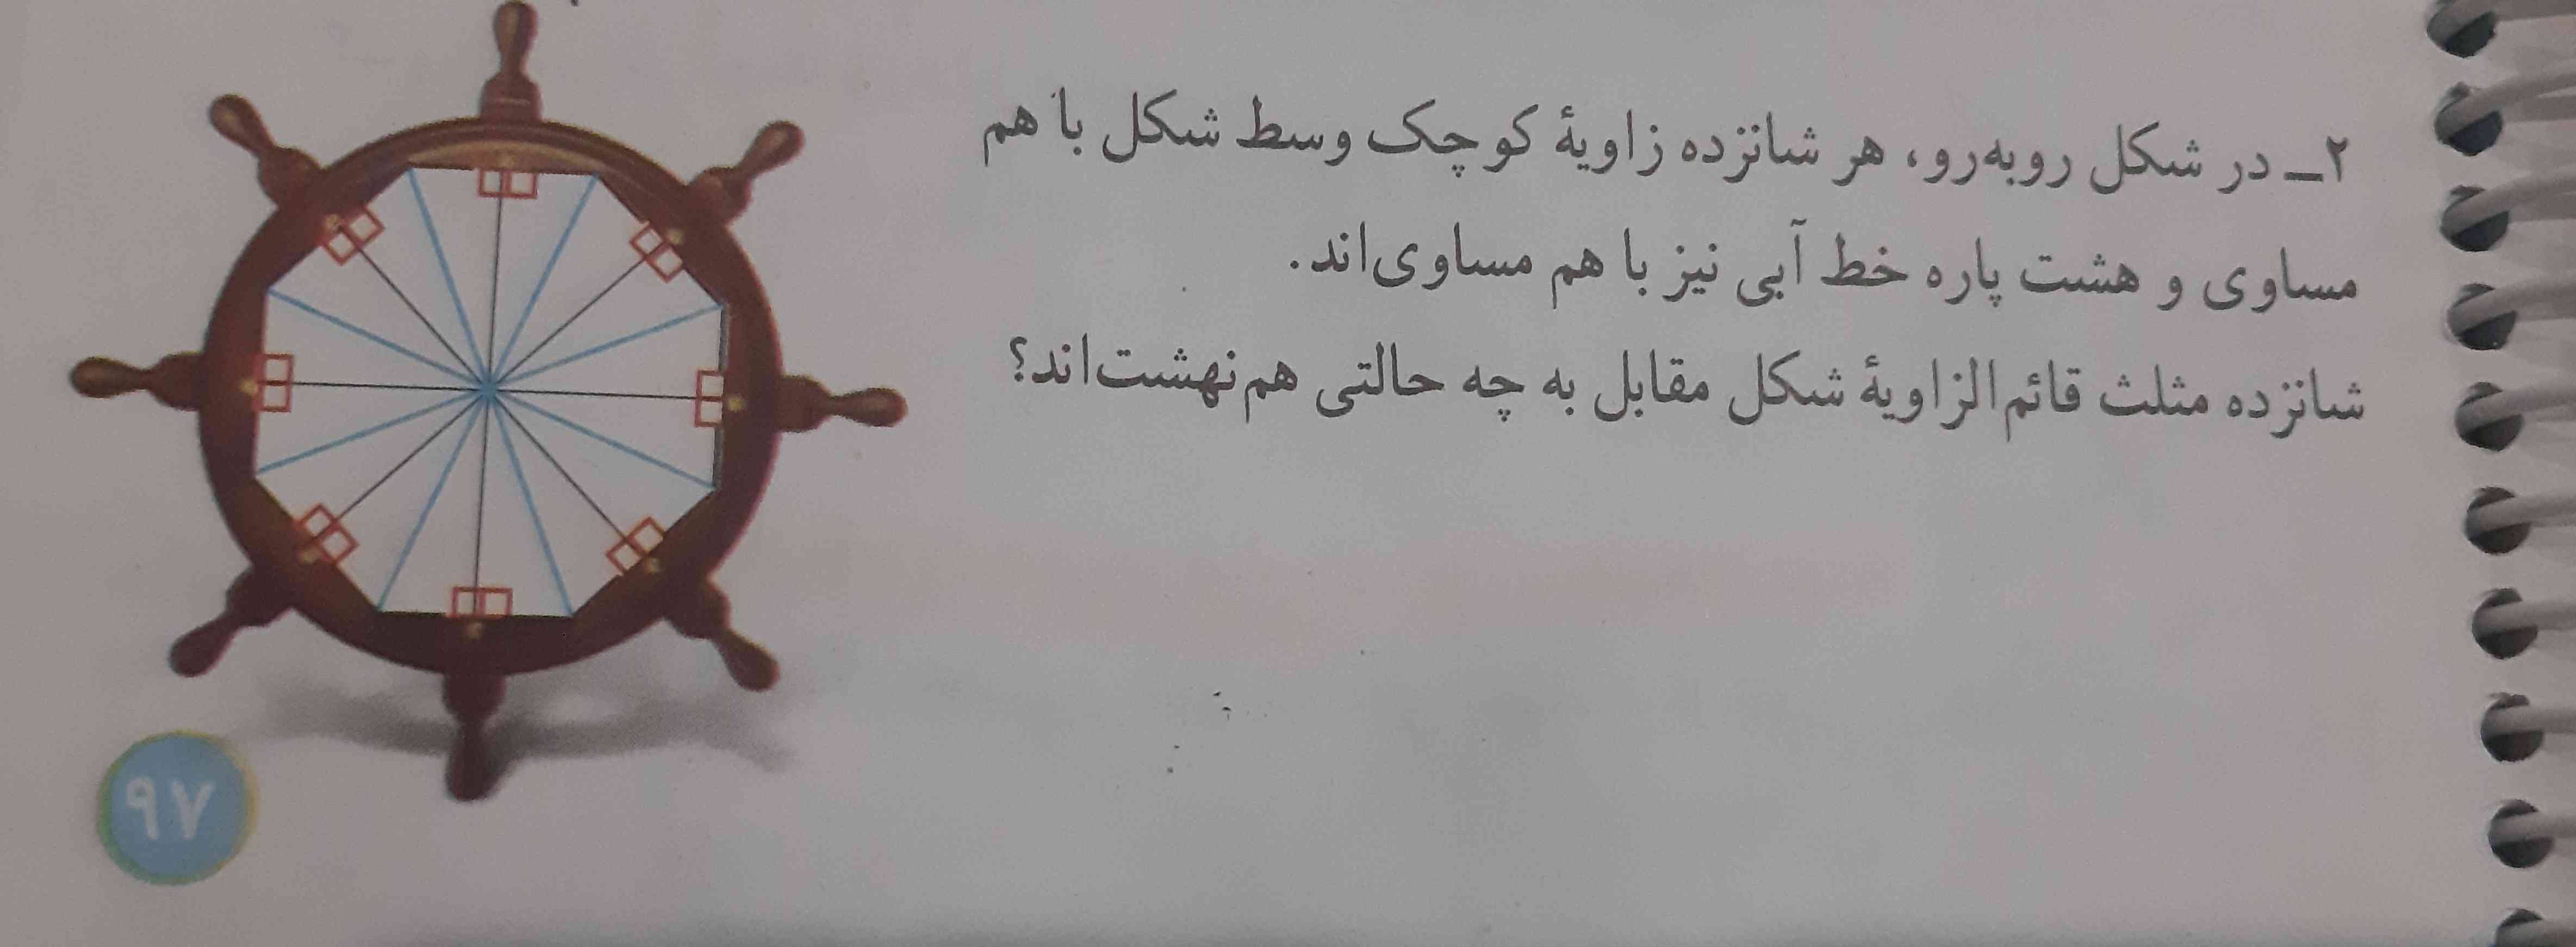 ۲ــ در شکل روبه‌رو، هر شانزده زاویهٔ کوچک وسط شکل با هم
مساوی و هشت پاره خط آبی نیز با هم مساوی‌اند.
شانزده مثلث قائم‌الزاویهٔ شکل مقابل به چه حالتی هم‌نهشت‌اند؟
۹۷